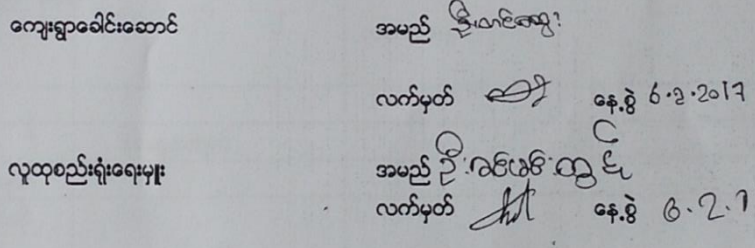 ကျေးရွာခေါင်းဆောင် အမည် ဦး
လက်မှတ် နေ့စွဲ 6.2.2017
လူထုစည်းရုံးရေးမှူး အမည် ဦး
လက်မှတ် နေ့စွဲ 6.2.1